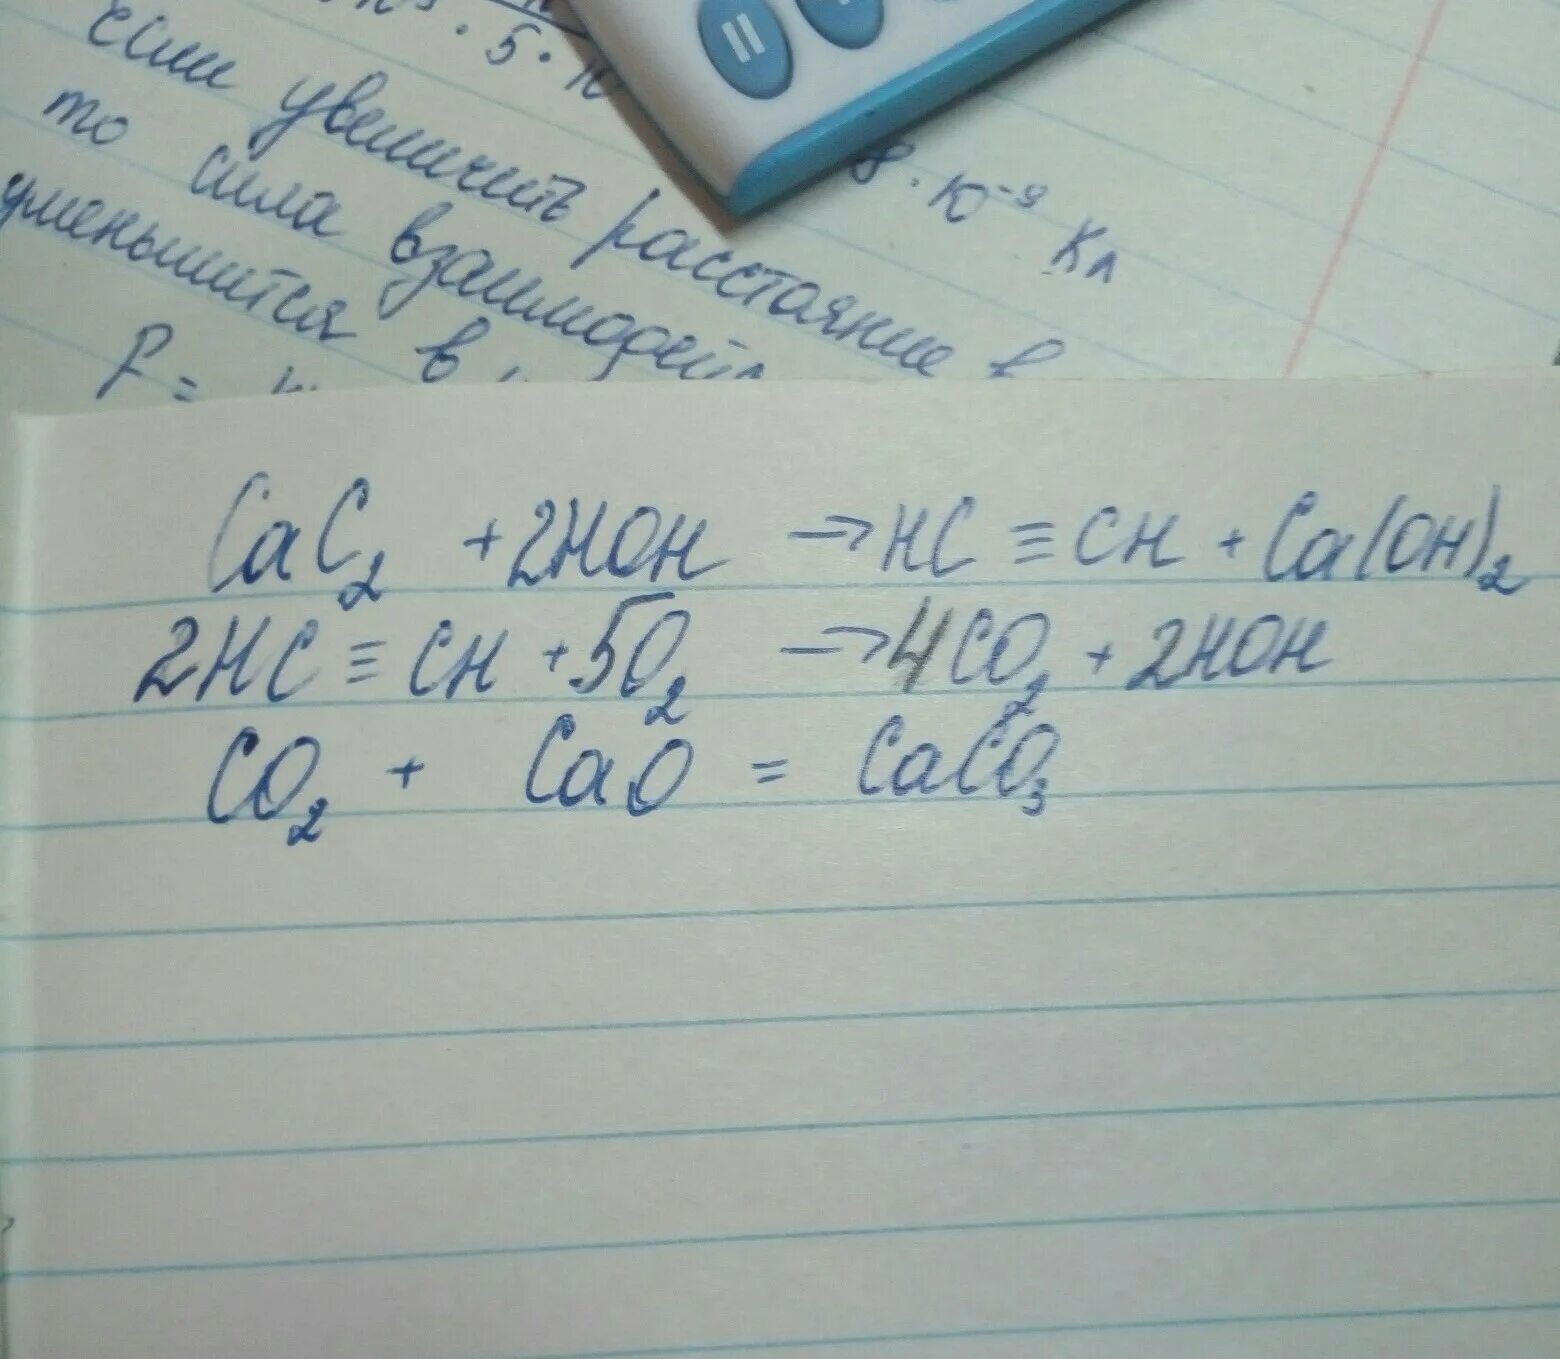 · 5 ·
если увеличить расстояние в
то сила
уменьшится в
8 · 10⁻⁹ Кл
F =
CaC₂ + 2HOH → HC ≡ CH + Ca(OH)₂
2HC ≡ CH + 5O₂ → 4CO₂ + 2HOH
CO₂ + CaO = CaCO₃